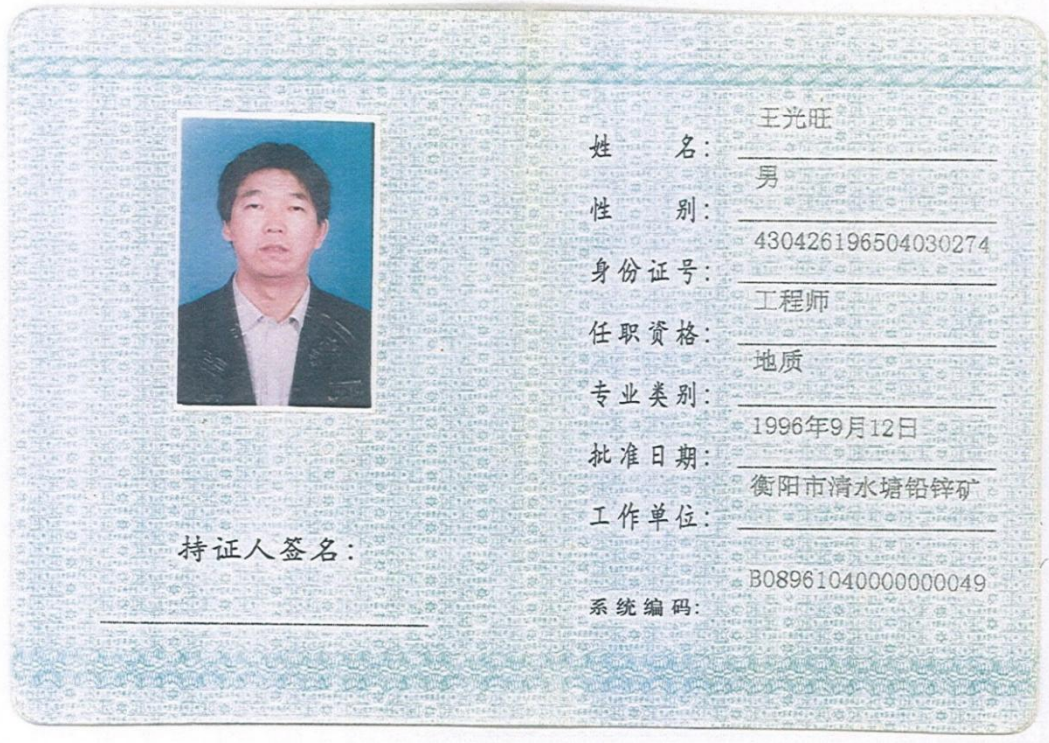 持证人签名：
姓 名： 王光旺
性 别： 男
身份证号： 430426196504030274
任职资格： 工程师
专业类别： 地质
批准日期： 1996年9月12日
工作单位： 衡阳市清水塘铅锌矿
系统编码： B08961040000000049